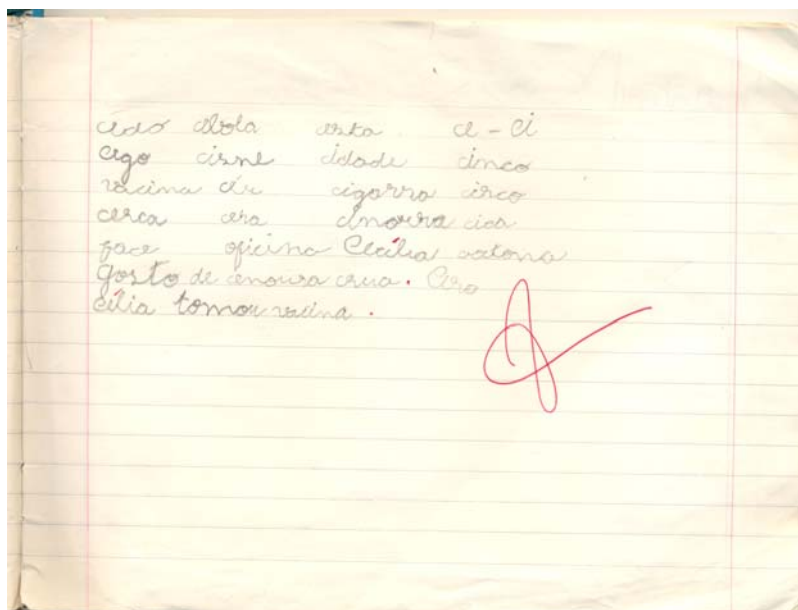 cedo cebola cesta ce - ci
cego cisne cidade cinco
vacina céu cigarra circo
cerca cera cenoura cica
face oficina Cecília
gosto de cenoura crua. Ciro
célia tomou vacina.